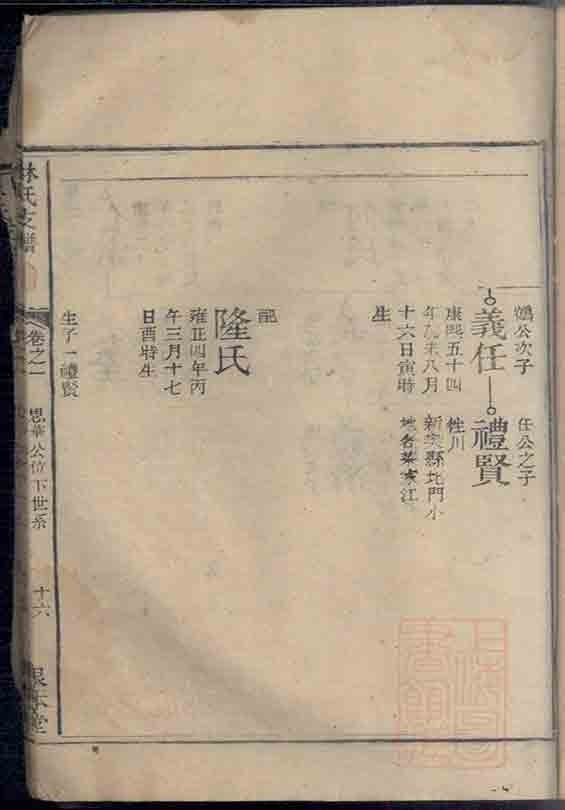 公次子
義任
康熙五十四
年乙未八月
十六日寅時
生
任公之子
禮賢
徃川
縣北門小
地名
配
隆氏
雍正四年丙
午三月十七
日酉時生
生子一禮賢
林氏支譜
卷之一
思華公位下世系
十六
本堂
上海圖書館藏